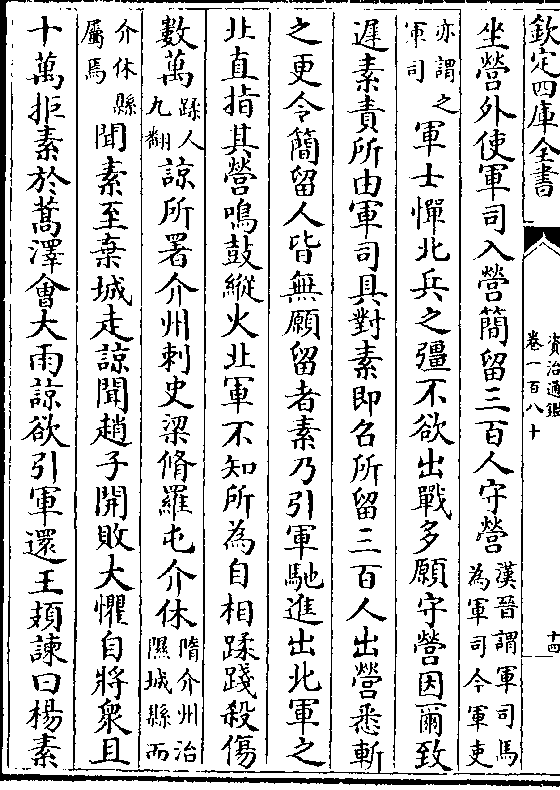 欽定四庫全書
資治通鑑
卷一百八十
十四
坐營外使軍司入營簡留三百人守營漢晉謂軍司馬為軍司今軍吏
亦謂之軍司軍士憚北兵之彊不欲出戰多願守營因爾致
遲素責所由軍司具對素即召所留三百人出營悉斬
之更令簡留人皆無願留者素乃引軍馳進出北軍之
北直指其營鳴鼓縱火北軍不知所為自相蹂踐殺傷
數萬蹂人九翻諒所署介州刺史梁脩羅屯介休隋介州治隰城縣而
介休縣屬焉聞素至棄城走諒聞趙子開敗大懼自將衆且
十萬拒素於蒿澤會大雨諒欲引軍還王頍諫曰楊素